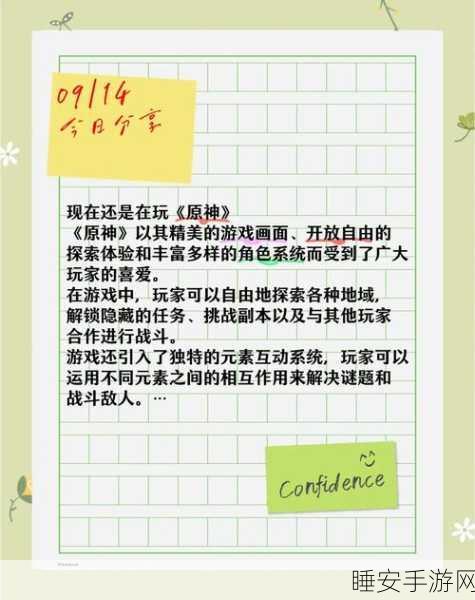 09/14
今日分享
现在还是在玩《原神》
《原神》以其精美的游戏画面、开放自由的
探索体验和丰富多样的角色系统而受到了广大
玩家的喜爱。
在游戏中，玩家可以自由地探索各种地域，
解锁隐藏的任务、挑战副本以及与其他玩家
合作进行战斗。
游戏还引入了独特的元素互动系统，玩家可以
运用不同元素之间的相互作用来解决谜题和
战斗敌人。…
Confidence
睡安手游网